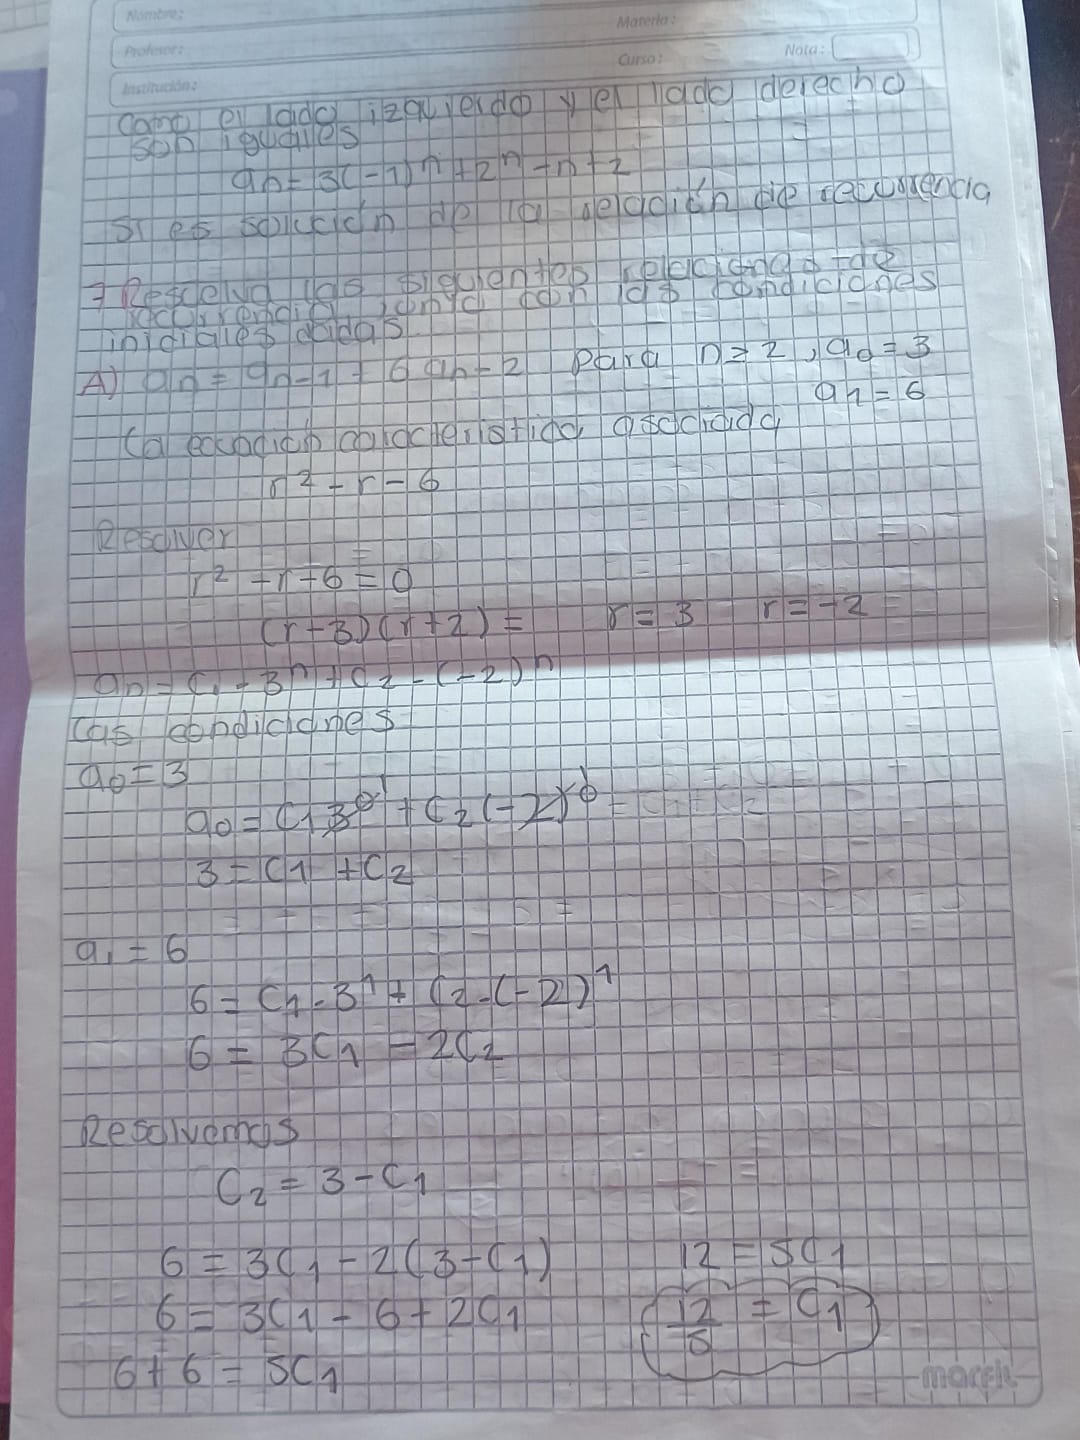 Nombre:
Materia:
Profesor:
Nota:
Curso:
Institución:
Como el lado izquierdo y el lado derecho
son iguales
an = 3(-1)^n + 2^n - n + 2
Si es solución de la relación de recurrencia
7 Resuelva las siguientes relaciones de
recurrencia junto con las condiciones
iniciales dadas
A) an = an-1 + 6 an-2 para n ≥ 2, a0 = 3
a1 = 6
La ecuación caracteristica asociada
r² - r - 6
Resolver
r² - r - 6 = 0
(r-3)(r+2) = r = 3 r = -2
an = C1 · 3^n + C2 · (-2)^n
Las condiciones
a0 = 3
a0 = C1 3^0 + C2 (-2)^0 = C1 + C2
3 = C1 + C2
a1 = 6
6 = C1 · 3^1 + C2 · (-2)^1
6 = 3C1 - 2C2
Resolvemos
C2 = 3 - C1
6 = 3C1 - 2(3 - C1) 12 = 5C1
6 = 3C1 - 6 + 2C1 12/5 = C1
6 + 6 = 5C1